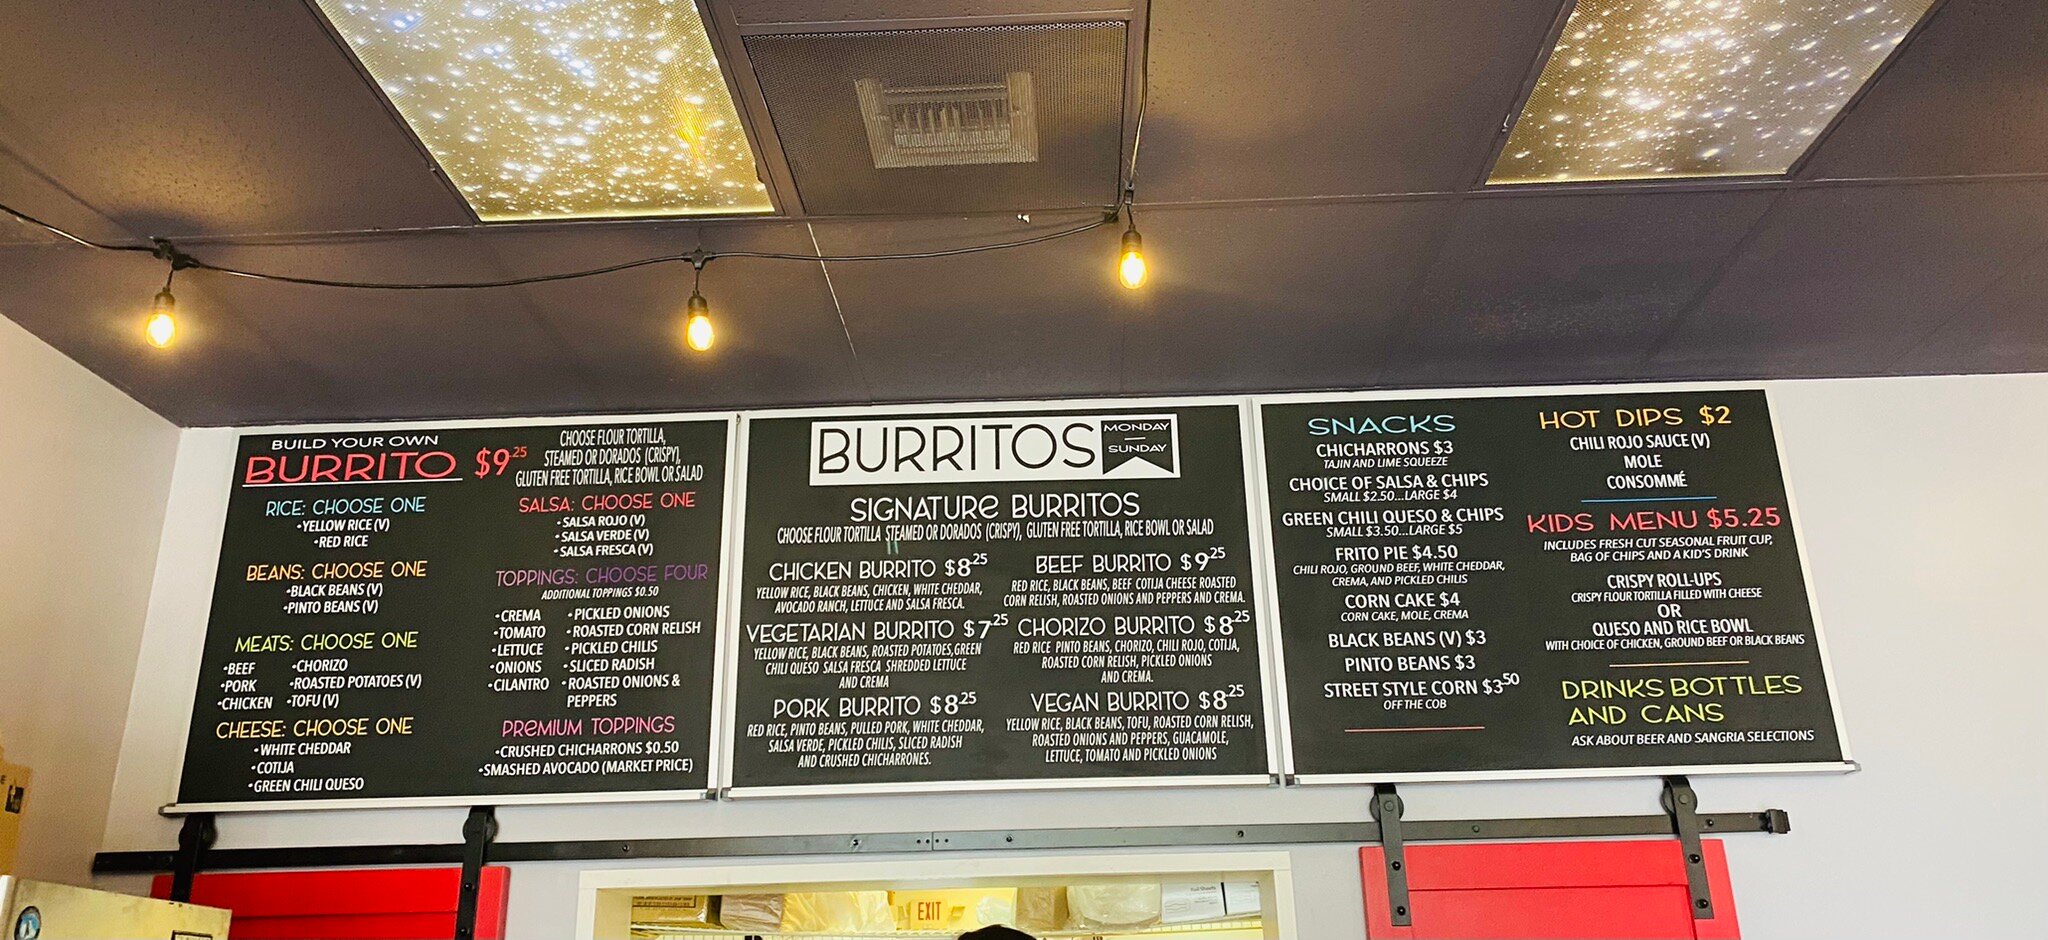 BUILD YOUR OWN
BURRITO $9.25
CHOOSE FLOUR TORTILLA,
STEAMED OR DORADOS (CRISPY),
GLUTEN FREE TORTILLA, RICE BOWL OR SALAD
RICE: CHOOSE ONE
•YELLOW RICE (V)
•RED RICE
BEANS: CHOOSE ONE
•BLACK BEANS (V)
•PINTO BEANS (V)
MEATS: CHOOSE ONE
•BEEF
•PORK
•CHICKEN
•CHORIZO
•ROASTED POTATOES (V)
•TOFU (V)
CHEESE: CHOOSE ONE
•WHITE CHEDDAR
•COTIJA
•GREEN CHILI QUESO
SALSA: CHOOSE ONE
•SALSA ROJO (V)
•SALSA VERDE (V)
•SALSA FRESCA (V)
TOPPINGS: CHOOSE FOUR
ADDITIONAL TOPPINGS $0.50
•CREMA
•TOMATO
•LETTUCE
•ONIONS
•CILANTRO
•PICKLED ONIONS
•ROASTED CORN RELISH
•PICKLED CHILIS
•SLICED RADISH
•ROASTED ONIONS &
PEPPERS
PREMIUM TOPPINGS
•CRUSHED CHICHARRONS $0.50
•SMASHED AVOCADO (MARKET PRICE)
BURRITOS
MONDAY
—
SUNDAY
SIGNATURE BURRITOS
CHOOSE FLOUR TORTILLA STEAMED OR DORADOS (CRISPY), GLUTEN FREE TORTILLA, RICE BOWL OR SALAD
CHICKEN BURRITO $8.25
YELLOW RICE, BLACK BEANS, CHICKEN, WHITE CHEDDAR,
AVOCADO RANCH, LETTUCE AND SALSA FRESCA.
VEGETARIAN BURRITO $7.25
YELLOW RICE, BLACK BEANS, ROASTED POTATOES, GREEN
CHILI QUESO SALSA FRESCA SHREDDED LETTUCE
AND CREMA
PORK BURRITO $8.25
RED RICE, PINTO BEANS, PULLED PORK, WHITE CHEDDAR,
SALSA VERDE, PICKLED CHILIS, SLICED RADISH
AND CRUSHED CHICHARRONES.
BEEF BURRITO $9.25
RED RICE, BLACK BEANS, BEEF COTIJA CHEESE ROASTED
CORN RELISH, ROASTED ONIONS AND PEPPERS AND CREMA.
CHORIZO BURRITO $8.25
RED RICE PINTO BEANS, CHORIZO, CHILI ROJO, COTIJA,
ROASTED CORN RELISH, PICKLED ONIONS
AND CREMA.
VEGAN BURRITO $8.25
YELLOW RICE, BLACK BEANS, TOFU, ROASTED CORN RELISH,
ROASTED ONIONS AND PEPPERS, GUACAMOLE,
LETTUCE, TOMATO AND PICKLED ONIONS
SNACKS
CHICHARRONS $3
TAJIN AND LIME SQUEEZE
CHOICE OF SALSA & CHIPS
SMALL $2.50...LARGE $4
GREEN CHILI QUESO & CHIPS
SMALL $3.50...LARGE $5
FRITO PIE $4.50
CHILI ROJO, GROUND BEEF, WHITE CHEDDAR,
CREMA, AND PICKLED CHILIS
CORN CAKE $4
CORN CAKE, MOLE, CREMA
BLACK BEANS (V) $3
PINTO BEANS $3
STREET STYLE CORN $3.50
OFF THE COB
HOT DIPS $2
CHILI ROJO SAUCE (V)
MOLE
CONSOMMÉ
KIDS MENU $5.25
INCLUDES FRESH CUT SEASONAL FRUIT CUP,
BAG OF CHIPS AND A KID'S DRINK
CRISPY ROLL-UPS
CRISPY FLOUR TORTILLA FILLED WITH CHEESE
OR
QUESO AND RICE BOWL
WITH CHOICE OF CHICKEN, GROUND BEEF OR BLACK BEANS
DRINKS BOTTLES
AND CANS
ASK ABOUT BEER AND SANGRIA SELECTIONS
EXIT